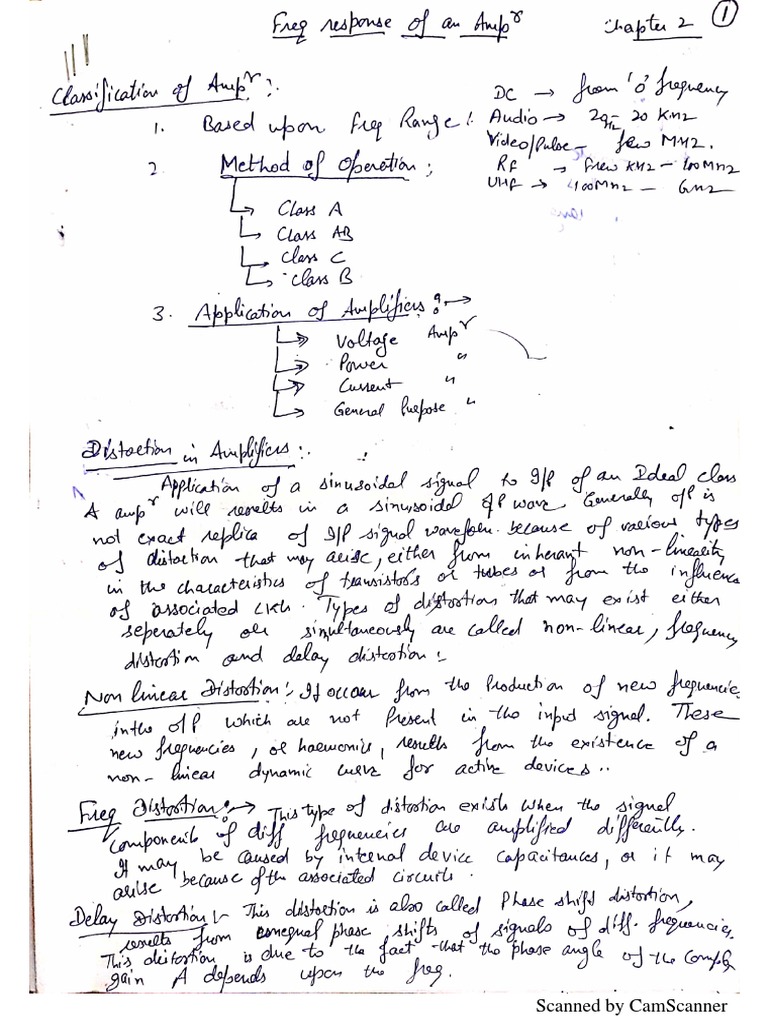 Freq response of an Ampr Chapter 2 1
Classification of Ampr :.
DC → from 'o' frequency
1. Based upon Freq Range :
Audio → 20Hz - 20 KHz
Video/Pulse - few MHz.
2 Method of Operation :
RF → Few KHz - 100MHz
UHF → 400MHz - GHz
Class A
Class AB
Class C
Class B
3. Application of Amplifiers : →
Voltage Ampr
Power "
Current "
General Purpose "
Distortion in Amplifiers :.
Application of a sinusoidal signal to I/P of an Ideal class
A ampr will results in a sinusoidal O/P wave. Generally O/P is
not exact replica of I/P signal waveform because of various types
of distortion that may arise, either from inherant non-linearity
in the characteristics of transistors or tubes or from the influence
of associated ckts. Types of distortion that may exist either
seperately or simultaneously are called non-linear, frequency
distortion and delay distortion :
Non linear Distortion : It occur from the Production of new frequencies
in the O/P which are not Present in the input signal. These
new frequencies, or harmonic, results from the existence of a
non-linear dynamic curve for active devices ..
Freq Distortion : → This type of distortion exist when the signal
components of diff frequencies are amplified differently.
It may be caused by internal device capacitances, or it may
arise because of the associated circuits.
Delay Distortion :- This distortion is also called Phase shift distortion,
results from unequal phase shifts of signals of diff. frequencies.
This distortion is due to the fact that the phase angle of the complex
gain A depends upon the freq.
Scanned by CamScanner